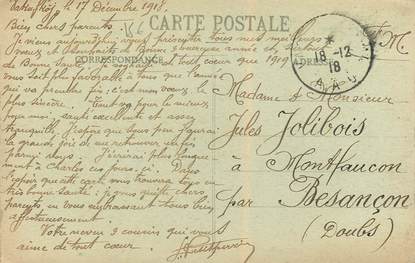 le 17 Décembre 1918.
CARTE POSTALE
Bien chers parents,
Je viens aujourd'hui vous présenter tous mes meilleurs
souhaits de Bonne & heureuse année et
de Bonne santé. Je souhaite de tout cœur que 1919
CORRESPONDANCE
vous soit plus favorable à tous que l'année
qui va prendre fin; c'est mon vœu le
plus sincère. Tout va pour le mieux
pour moi; santé excellente et assez
tranquille. J'espère que sous peu j'aurai
la grande joie de me retrouver enfin
parmi vous. J'écrirai plus longuement
à Charles ces jours-ci. Dans
l'espoir que cette carte vous trouvera tous en
très bonne santé, je vous quitte chers
parents, en vous embrassant tous bien
affectueusement.
Votre neveu & cousin qui vous
aime de tout cœur.
18-12
18
F. M.
Madame & Monsieur
Jules Jolibois
à Montfaucon
par Besançon
(Doubs)